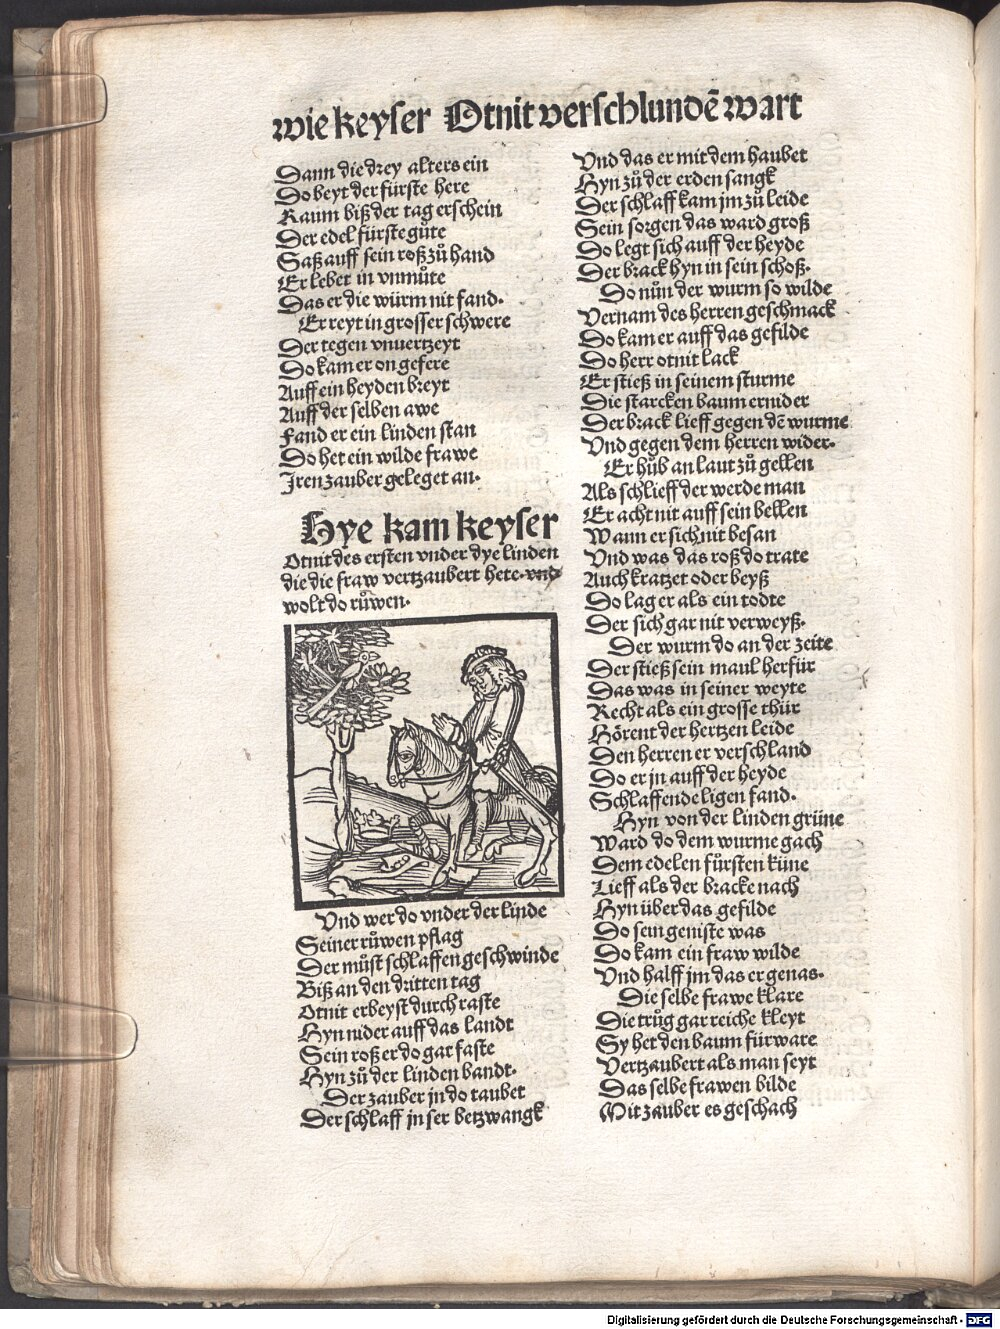 wie keyser Otnit verschlundē wart
Dann die drey alters ein
Do beyt der fürste here
Kaum biß der tag erschein
Der edel fürste gůte
Saß auff sein roß zů hand
Er lebet in vnmůte
Das er die würm nit fand.
Er reyt in grosser schwere
Der tegen vnuertzeyt
Do kam er on gefere
Auff ein heyden breyt
Auff der selben awe
Fand er ein linden stan
Do het ein wilde frawe
Jren zauber geleget an.
Hye kam keyser
Otnit des ersten vnder dye linden
die die fraw vertzaubert hete. vnd
wolt do růwen.
Vnd wer do vnder der linde
Seiner růwen pflag
Der můst schlaffen geschwinde
Biß an den dritten tag
Otnit erbeyst durch raste
Hyn nider auff das landt
Sein roß er do gar faste
Hyn zů der linden bandt.
Der zauber jn do taubet
Der schlaff jn ser betzwangk
Vnd das er mit dem haubet
Hyn zů der erden sangk
Der schlaff kam jm zů leide
Sein sorgen das ward groß
Do legt sich auff der heyde
Der brack hyn in sein schoß.
Do nůn der wurm so wilde
Vernam des herren geschmack
Do kam er auff das gefilde
Do herr otnit lack
Er stieß in seinem sturme
Die starcken baum ernider
Der brack lieff gegen dē wurme
Vnd gegen dem herren wider.
Er hůb an laut zů gellen
Als schlieff der werde man
Er acht nit auff sein bellen
Wann er sich nit besan
Vnd was das roß do trate
Auch kratzet oder beyß
Do lag er als ein todte
Der sich gar nit verweyß.
Der wurm do an der zeite
Der stieß sein maul herfür
Das was in seiner weyte
Recht als ein grosse thür
Hörent der hertzen leide
Den herren er verschland
Do er jn auff der heyde
Schlaffende ligen fand.
Hyn von der linden grüne
Ward do dem wurme gach
Dem edelen fürsten küne
Lieff als der bracke nach
Hyn über das gefilde
Do sein geniste was
Do kam ein fraw wilde
Vnd halff jm das er genas.
Die selbe frawe klare
Die trůg gar reiche kleyt
Sy het den baum fürware
Vertzaubert als man seyt
Das selbe frawen bilde
Mit zauber es geschach
Digitalisierung gefördert durch die Deutsche Forschungsgemeinschaft - DFG